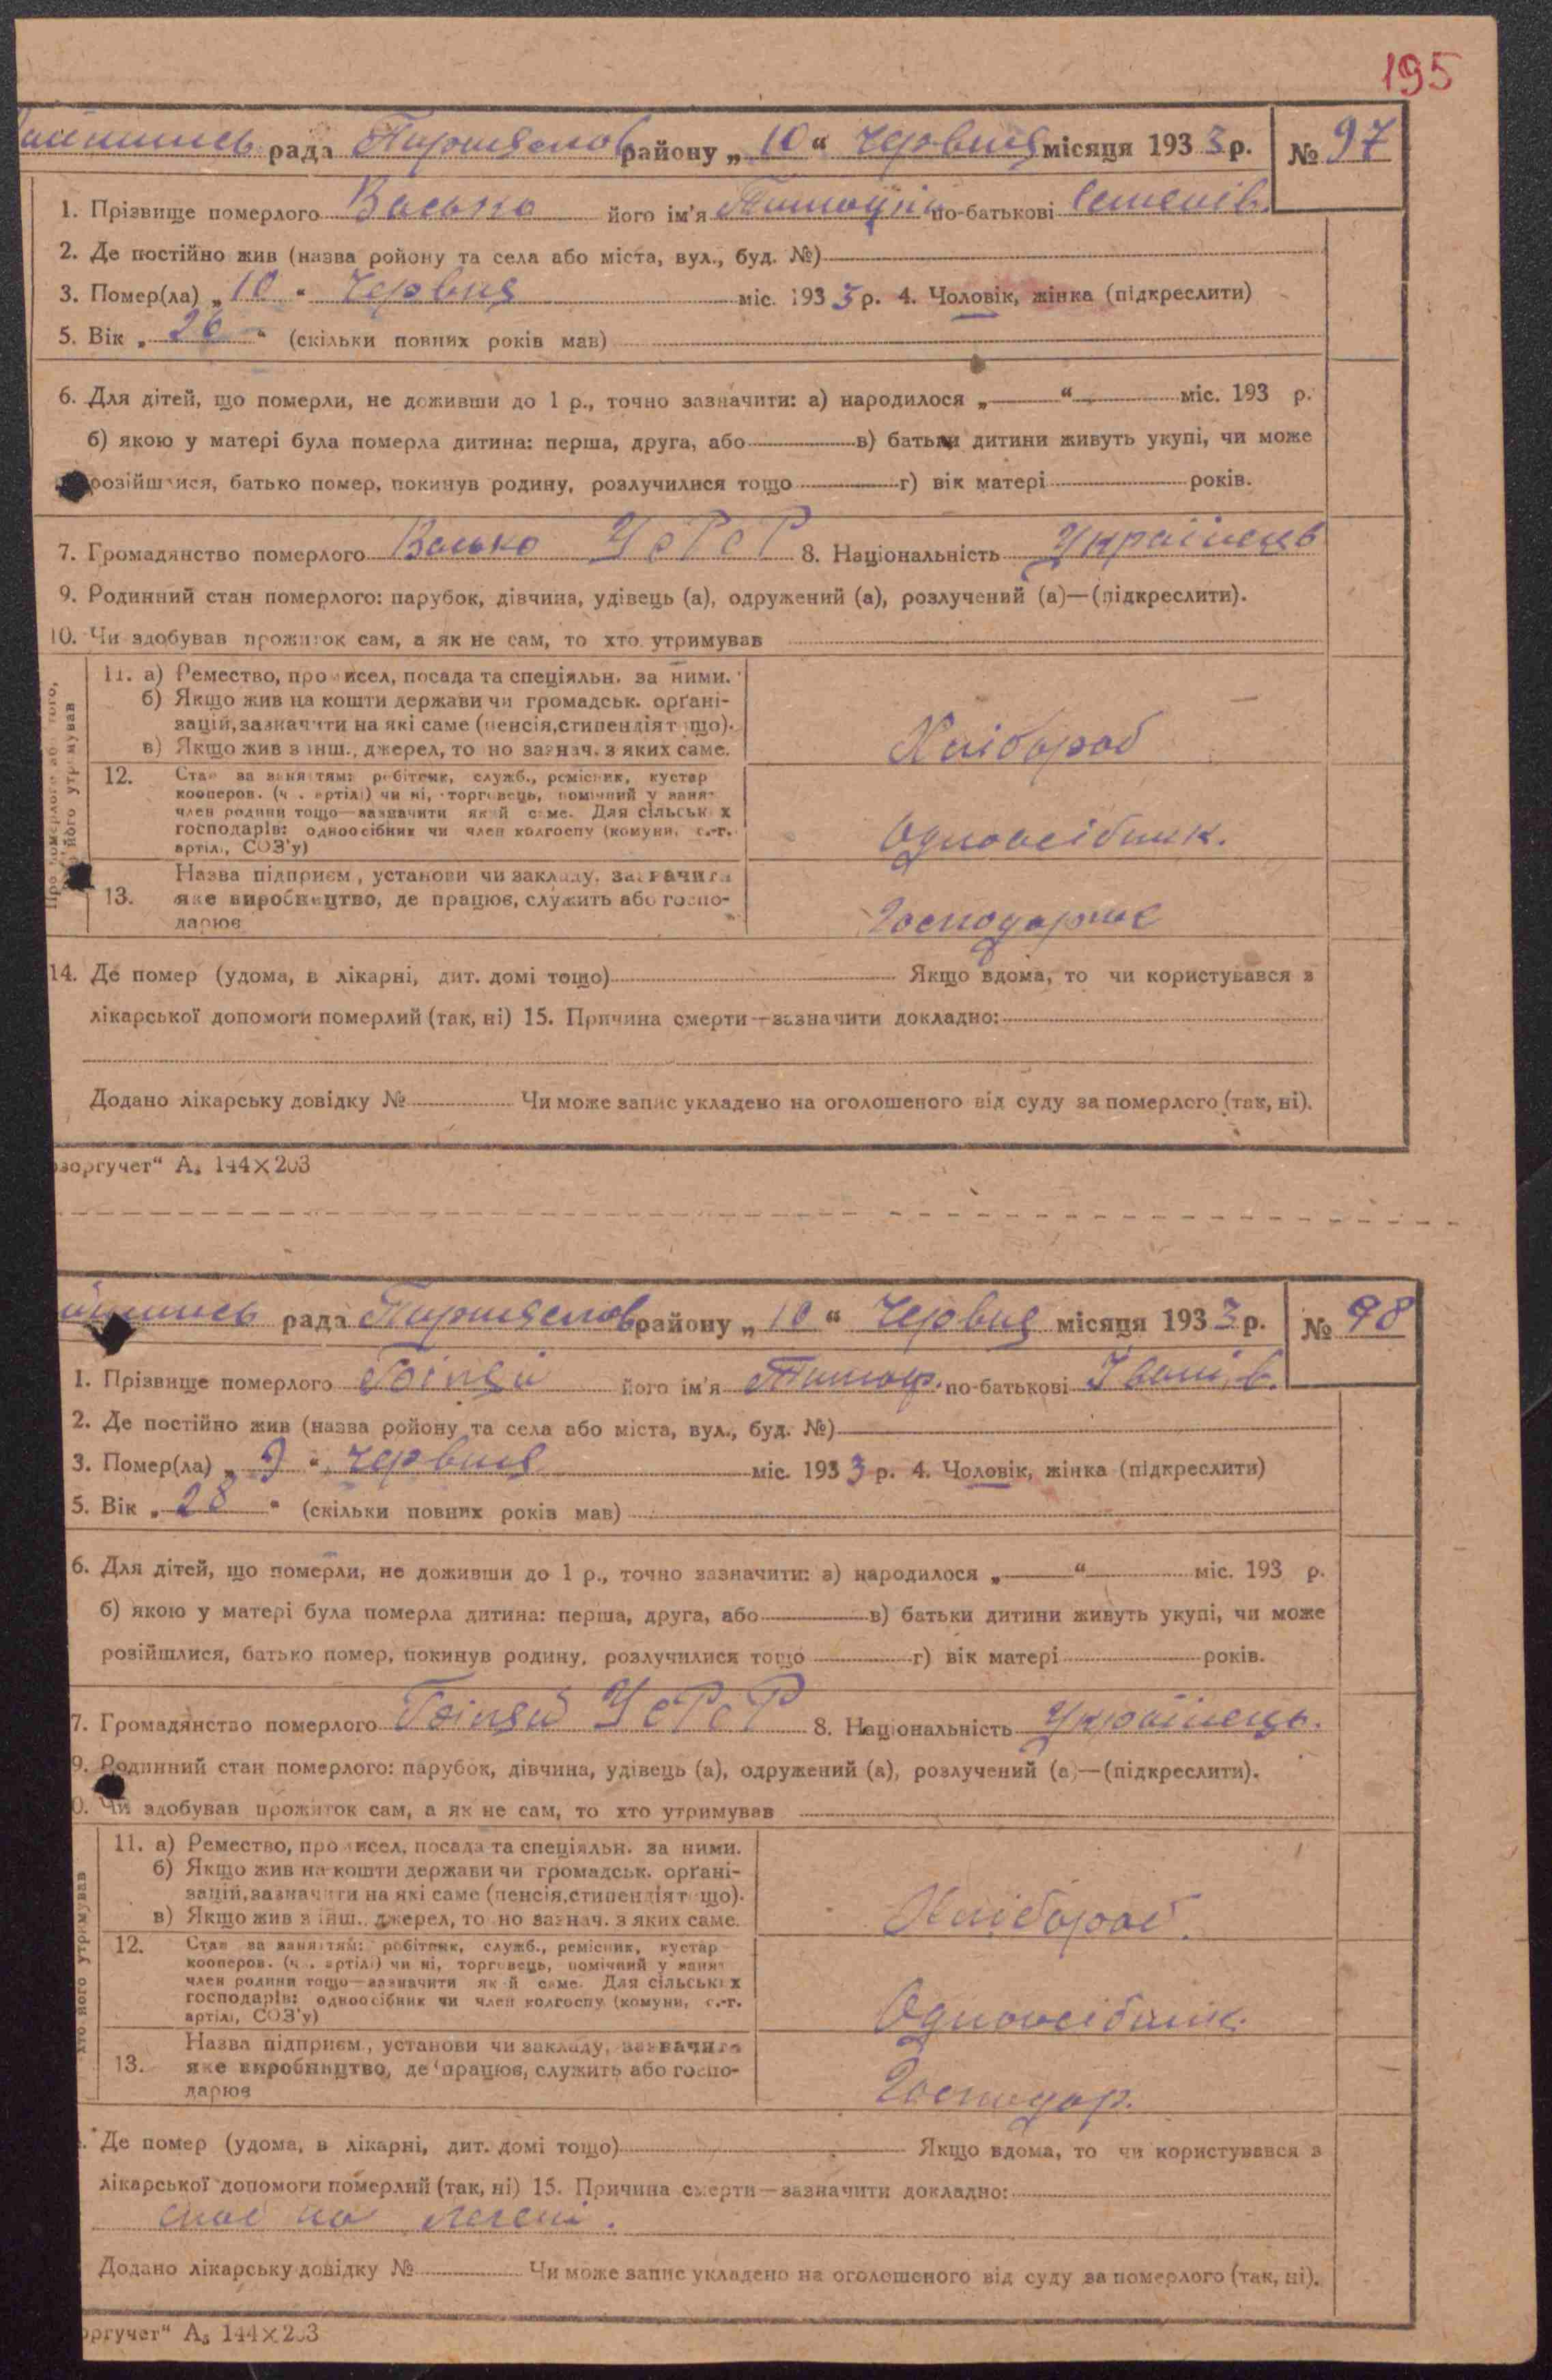 195
рада району „ 10 “ Червця місяця 1933 р. № 97
1. Прізвище померлого Васько його ім'я по-батькові Семенів.
2. Де постійно жив (назва ройону та села або міста, вул., буд. №)
3. Помер(ла) „ 10 “ Червця міс. 1933 р. 4. Чоловік, жінка (підкреслити)
5. Вік „ 26 “ (скільки повних років мав)
6. Для дітей, що померли, не доживши до 1 р., точно зазначити: а) народилося „ “ міс. 193 р.
б) якою у матері була померла дитина: перша, друга, або в) батьки дитини живуть укупі, чи може
розійшлися, батько помер, покинув родину, розлучилися тощо г) вік матері років.
7. Громадянство померлого Васько УСРСР 8. Національність Українець
9. Родинний стан померлого: парубок, дівчина, удівець (а), одружений (а), розлучений (а)—(підкреслити).
10. Чи здобував прожиток сам, а як не сам, то хто утримував
11. а) Ремество, промисел, посада та спеціяльн. за ними.
б) Якщо жив на кошти держави чи громадськ. орґані-
зацій, зазначити на які саме (пенсія, стипендія тощо).
в) Якщо жив з інш. джерел, то но зазнач. з яких саме.
Хлібороб
12. Стан за заняттям: робітник, служб., ремісник, кустар
кооперов. (ч . артілі) чи ні, торговець, помічний у занят
член родини тощо—зазначити який саме. Для сільських
господарів: одноосібник чи член колгоспу (комуни, с.-г.
артілі, СОЗ'у)
Одноосібник.
Назва підприєм., установи чи закладу, зазначити
13. яке виробництво, де працює, служить або госпо-
дарює
14. Де помер (удома, в лікарні, дит. домі тощо) Якщо вдома, то чи користувався з
лікарської допомоги померлий (так, ні) 15. Причина смерти—зазначити докладно:
Додано лікарську довідку № Чи може запис укладено на оголошеного від суду за померлого (так, ні).
зоргучет“ А₅ 144×203
рада району „ 10 “ Червця місяця 1933 р. № 98
1. Прізвище померлого його ім'я Тимоф. по-батькові Іванів.
2. Де постійно жив (назва ройону та села або міста, вул., буд. №)
3. Помер(ла) „ 9 “ Червця міс. 1933 р. 4. Чоловік, жінка (підкреслити)
5. Вік „ 28 “ (скільки повних років мав)
6. Для дітей, що померли, не доживши до 1 р., точно зазначити: а) народилося „ “ міс. 193 р.
б) якою у матері була померла дитина: перша, друга, або в) батьки дитини живуть укупі, чи може
розійшлися, батько помер, покинув родину, розлучилися тощо г) вік матері років.
7. Громадянство померлого УСРСР 8. Національність Українець.
9. Родинний стан померлого: парубок, дівчина, удівець (а), одружений (а), розлучений (а)—(підкреслити).
0. Чи здобував прожиток сам, а як не сам, то хто утримував
11. а) Ремество, промисел, посада та спеціяльн. за ними.
б) Якщо жив на кошти держави чи громадськ. орґані-
зацій, зазначити на які саме (пенсія, стипендія тощо).
в) Якщо жив з інш. джерел, то но зазнач. з яких саме.
Хлібороб.
12. Стан за заняттям: робітник, служб., ремісник, кустар
кооперов. (ч . артілі) чи ні, торговець, помічний у занят
член родини тощо—зазначити який саме. Для сільських
господарів: одноосібник чи член колгоспу (комуни, с.-г.
артілі, СОЗ'у)
Одноосібник.
Назва підприєм., установи чи закладу, зазначити
13. яке виробництво, де працює, служить або госпо-
дарює
Господар.
Де помер (удома, в лікарні, дит. домі тощо) Якщо вдома, то чи користувався з
лікарської допомоги померлий (так, ні) 15. Причина смерти—зазначити докладно:
легені.
Додано лікарську довідку № Чи може запис укладено на оголошеного від суду за померлого (так, ні).
оргучет“ А₅ 144×203